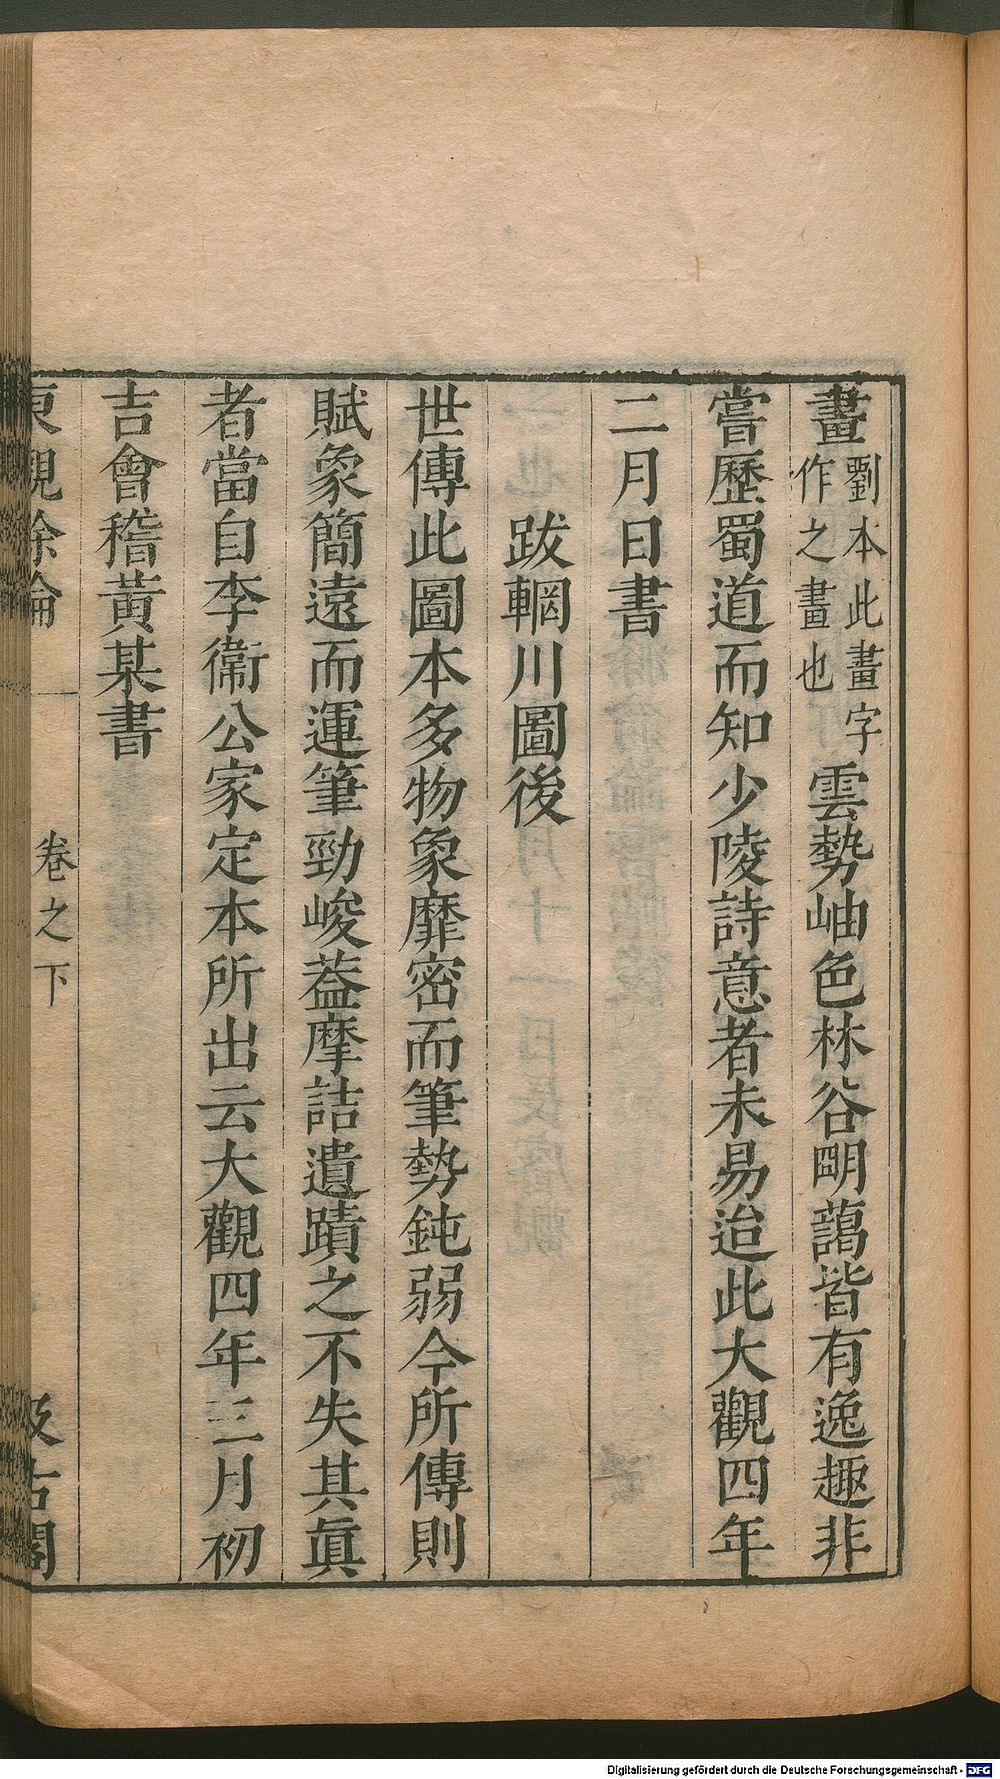 畫劉本此畫字作之畫也雲勢岫色林谷朙藹皆有逸趣非
嘗歷蜀道而知少陵詩意者未易迨此大觀四年
二月日書
跋輞川圖後
世傳此圖本多物象靡密而筆勢鈍弱今所傳則
賦象簡遠而運筆勁峻葢摩詰遺蹟之不失其眞
者當自李衞公家定本所出云大觀四年三月初
吉會稽黃某書
東觀餘論 卷之下 汲古閣
Digitalisierung gefördert durch die Deutsche Forschungsgemeinschaft - DFG